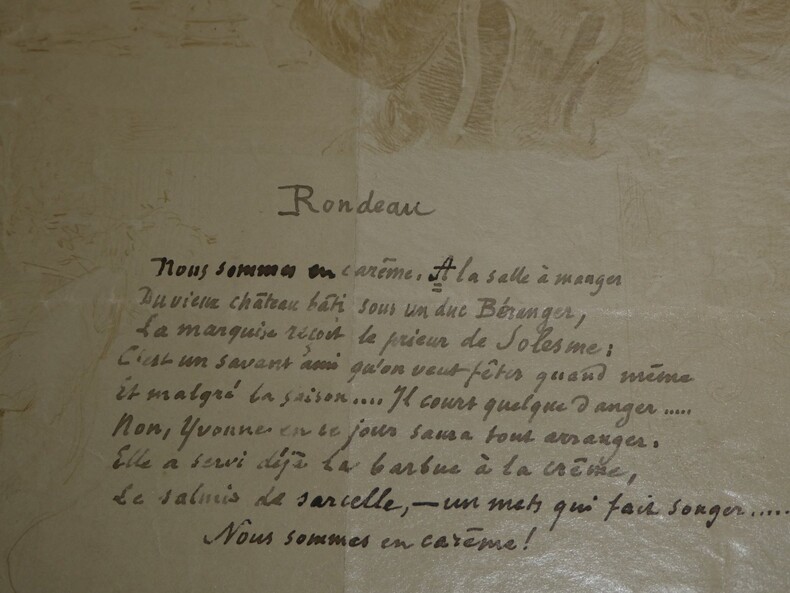 Rondeau
Nous sommes en carême. A la salle à manger
Du vieux château bâti sous un duc Béranger,
La marquise reçoit le prieur de Solesme :
C'est un savant ami qu'on veut fêter quand même
Et malgré la saison.... Il court quelque danger .....
Non, Yvonne en ce jour saura tout arranger.
Elle a servi déjà la barbue à la crème,
Le salmis de sarcelle, — un mets qui fait songer.....
Nous sommes en carême !